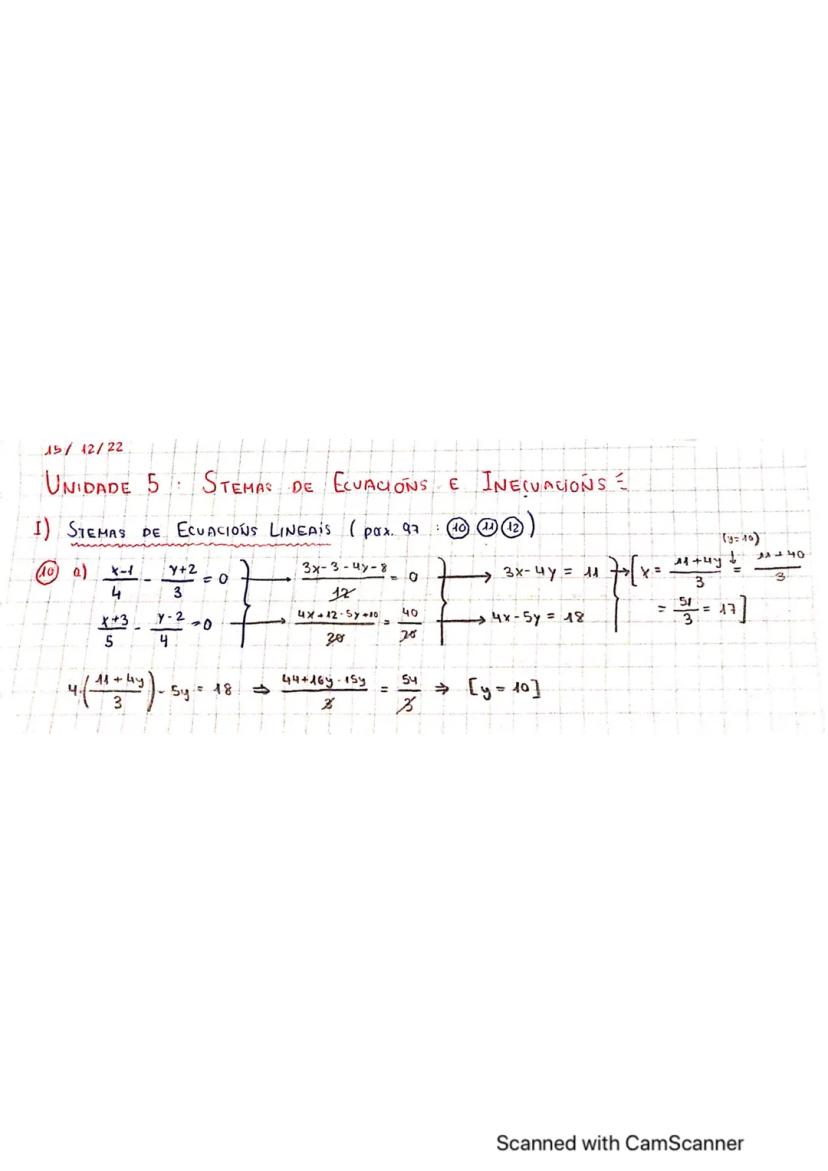 15/12/22
UNIDADE 5: STEMAS DE ECUACIÓNS E INECUACIÓNS
I) STEMAS DE ECUACIÓNS LINEAIS (páx. 97 : 10 11 12)
10 a) (x-1)/4 - (y+2)/3 = 0 } → (3x-3-4y-8)/12 = 0 } → 3x-4y = 11 } → [x = (11+4y)/3 (y=10) ↓ = (11+40)/3
(x+3)/5 - (y-2)/4 = 0 → (4x+12-5y+10)/20 = 40/20 → 4x-5y = 18 = 51/3 = 17]
4·((11+4y)/3) - 5y = 18 ⇒ (44+16y-15y)/3 = 54/3 ⇒ [y = 10]
Scanned with CamScanner